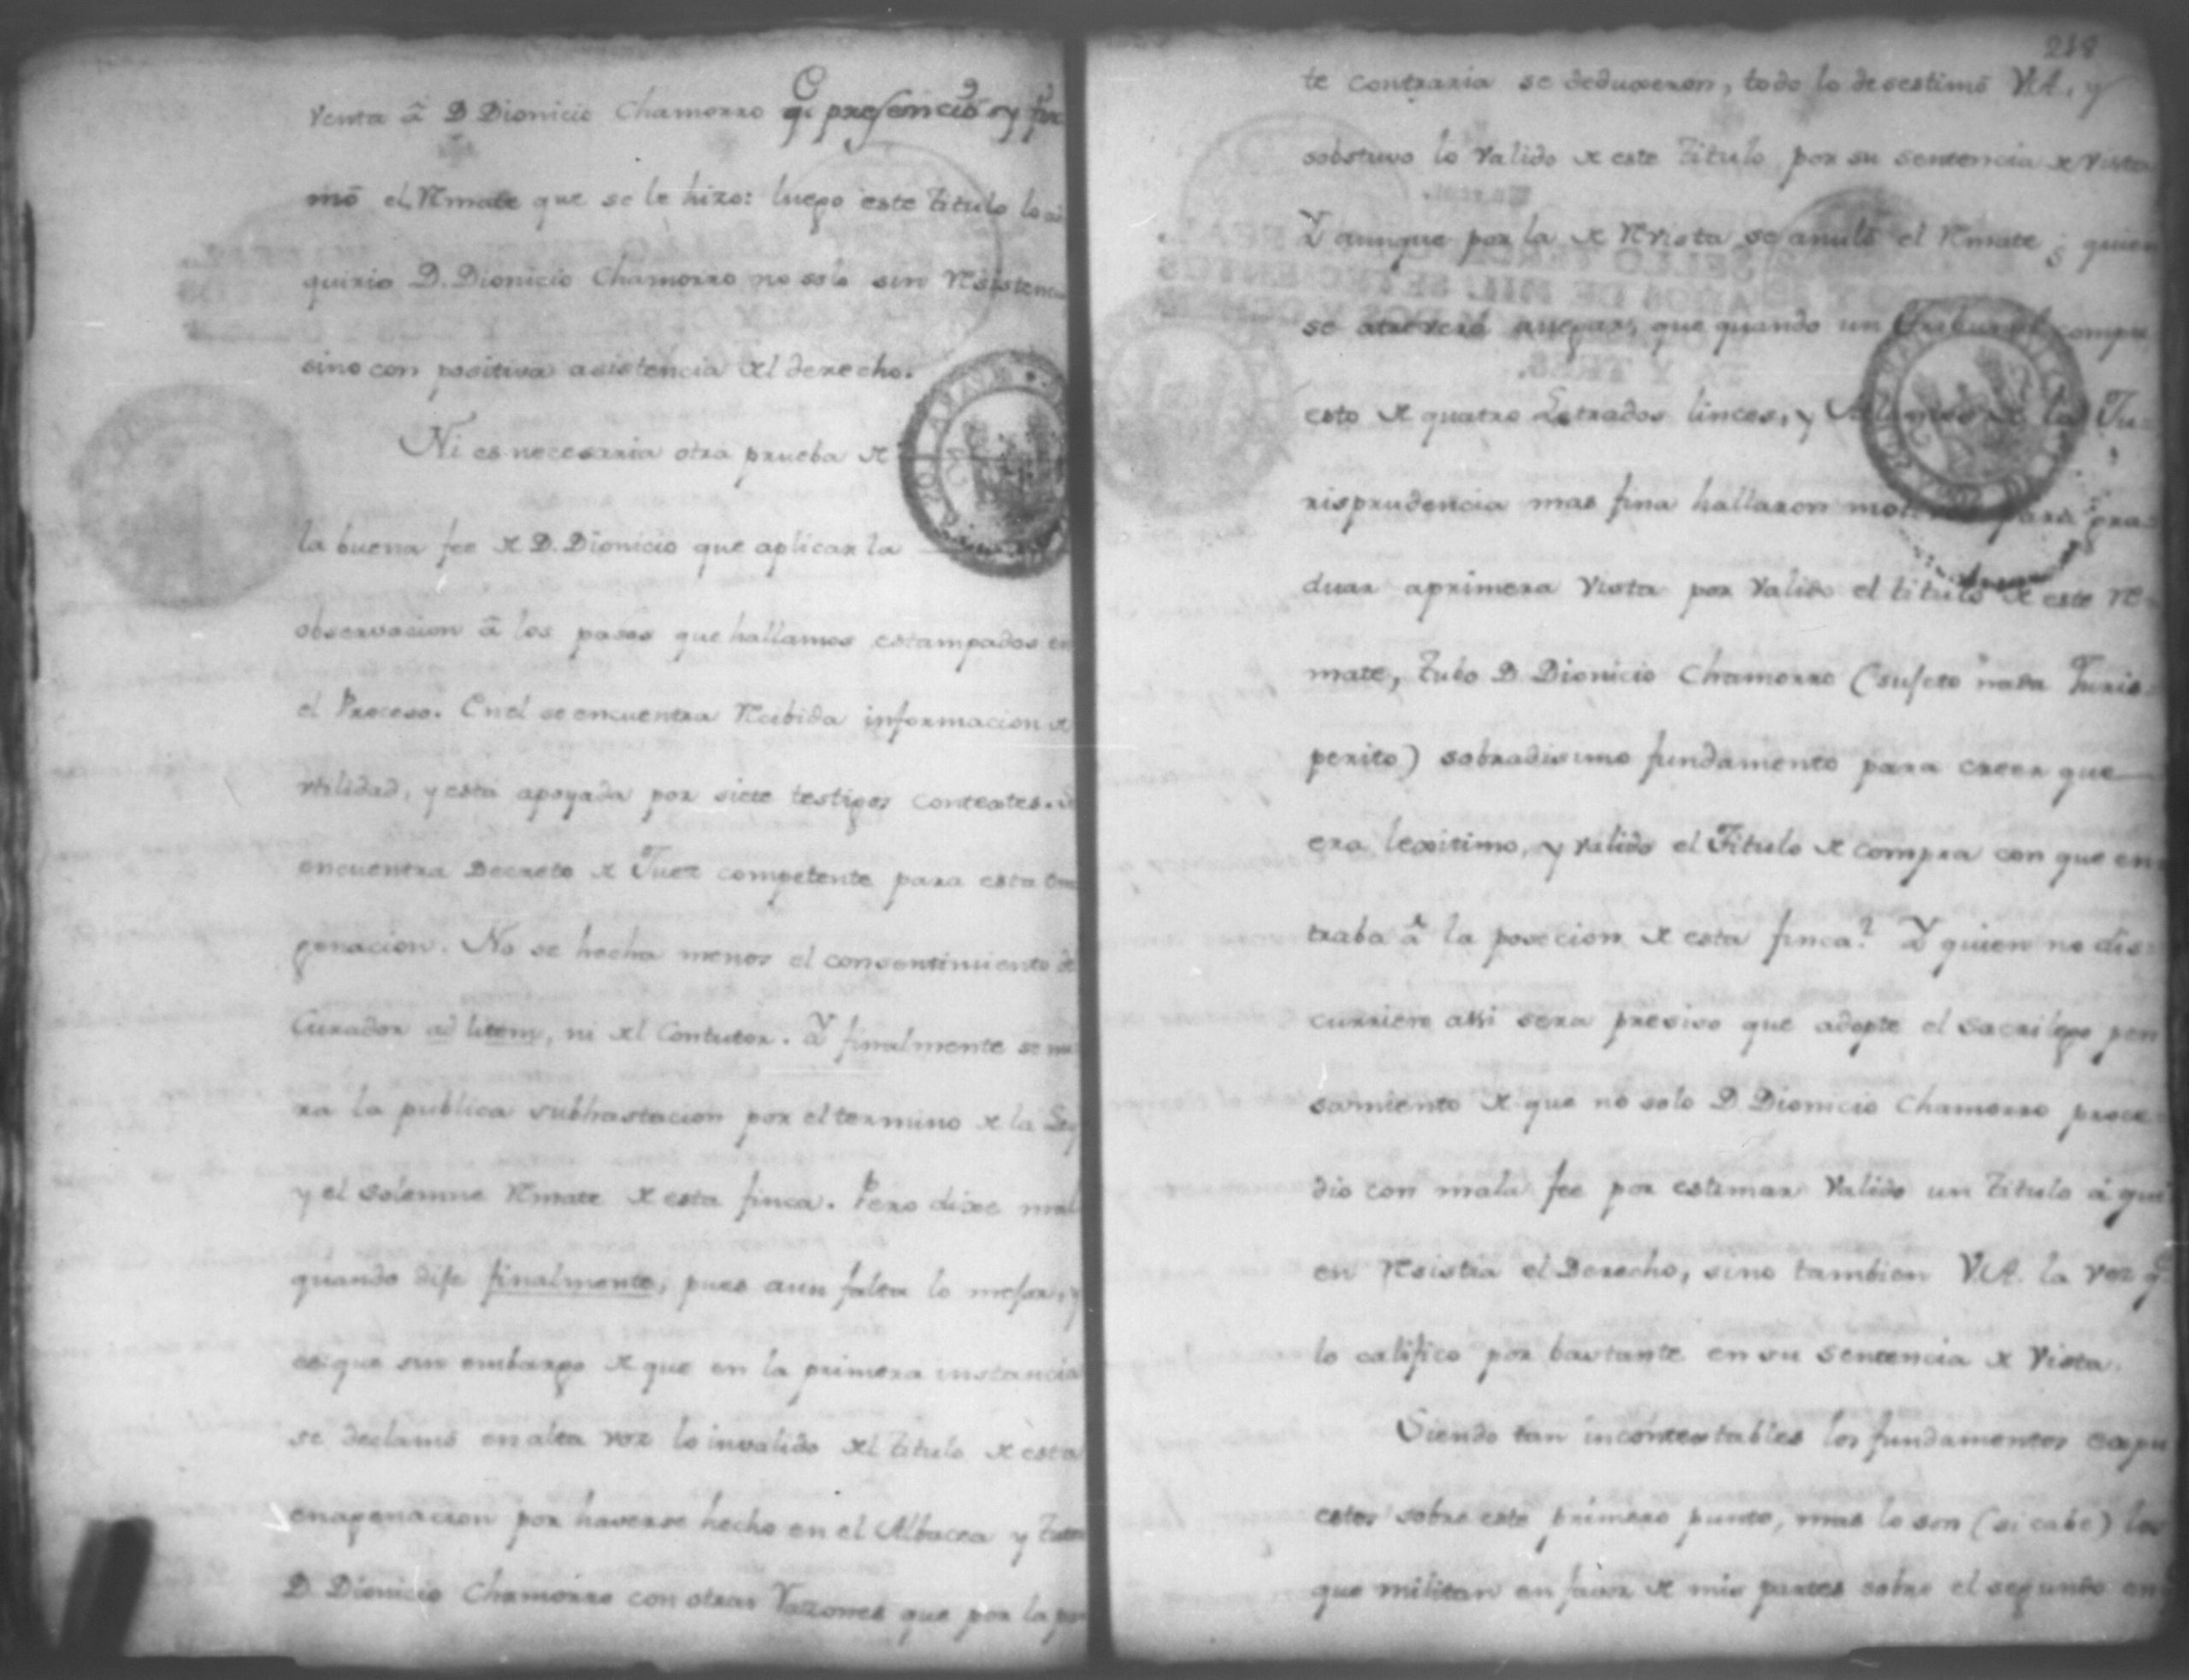 Venta â D Dionicio Chamorro qe. presenció, y fir
mó el Rmate que se le hizo: luego este titulo lo ad
quirio D. Dionicio Chamorro no solo sin Rsistencia
sino con positiva asistencia del derecho.
Ni es necesaria otra prueba de
la buena fee de D. Dionicio que aplicar la
observacion â los pasos que hallamos estampados en
el Proceso. En el se encuentra Rcibida informacion de
vtilidad, y esta apoyada por siete testigos contextes. Se
encuentra Decreto de Juez competente para esta ena
genacion. No se hecha menos el consentimiento del
Curador ad litem, ni del Contutor. Y finalmente se mi
ra la publica subhastacion por el termino de la Ley
y el solemne Rmate de esta finca. Pero dixe mal
quando dije finalmente, pues aun falta lo mejor, y
es que sin embargo de que en la primera instancia
se declamó en alta voz lo invalido del titulo de esta
enagenacion por haverse hecho en el Albacea y Tutor
D. Dionicio Chamorro con otras Razones que por la par
218
te contraria se deduxeron, todo lo desestimó V.A. y
sobstuvo lo valido de este titulo por su sentencia de vista
Y aunque por la de Rvista se anuló el Rmate ¿ quien
se atreverá a negar, que quando un Tribunal compu
esto de quatro Letrados linces, y de la Ju-
risprudencia mas fina hallaron motivos para gra-
duar a primera vista por valido el titulo de este R-
mate, tubo D. Dionicio Chamorro (sujeto nada Juris-
perito) sobradisimo fundamento para creer que
era lexitimo, y valido el Titulo de compra con que en-
traba â la posecion de esta finca? Y quien no dis-
curriere assi sera presiso que adopte el sacrilego pen
samiento de que no solo D Dionicio Chamorro proce-
dio con mala fee por estimar valido un titulo â qui
en Rsistia el Derecho, sino tambien V.A. la vez q.e
lo califico por bastante en su sentencia de Vista.
Siendo tan incontextables los fundamentos expu
estos sobre este primero punto, mas lo son (si cabe) los
que militan en favor de mis partes sobre el segundo en